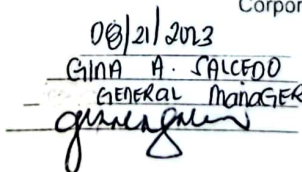 Corpor
08/21/2023
GINA A. SALCEDO
GENERAL MANAGER